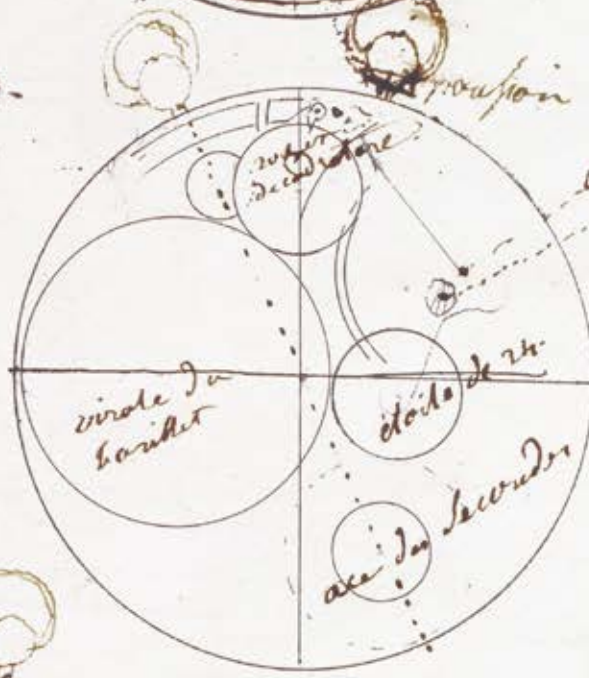 poussoir
rocher
de cadrature
virole du
barillet
étoile de 24.
axe des secondes